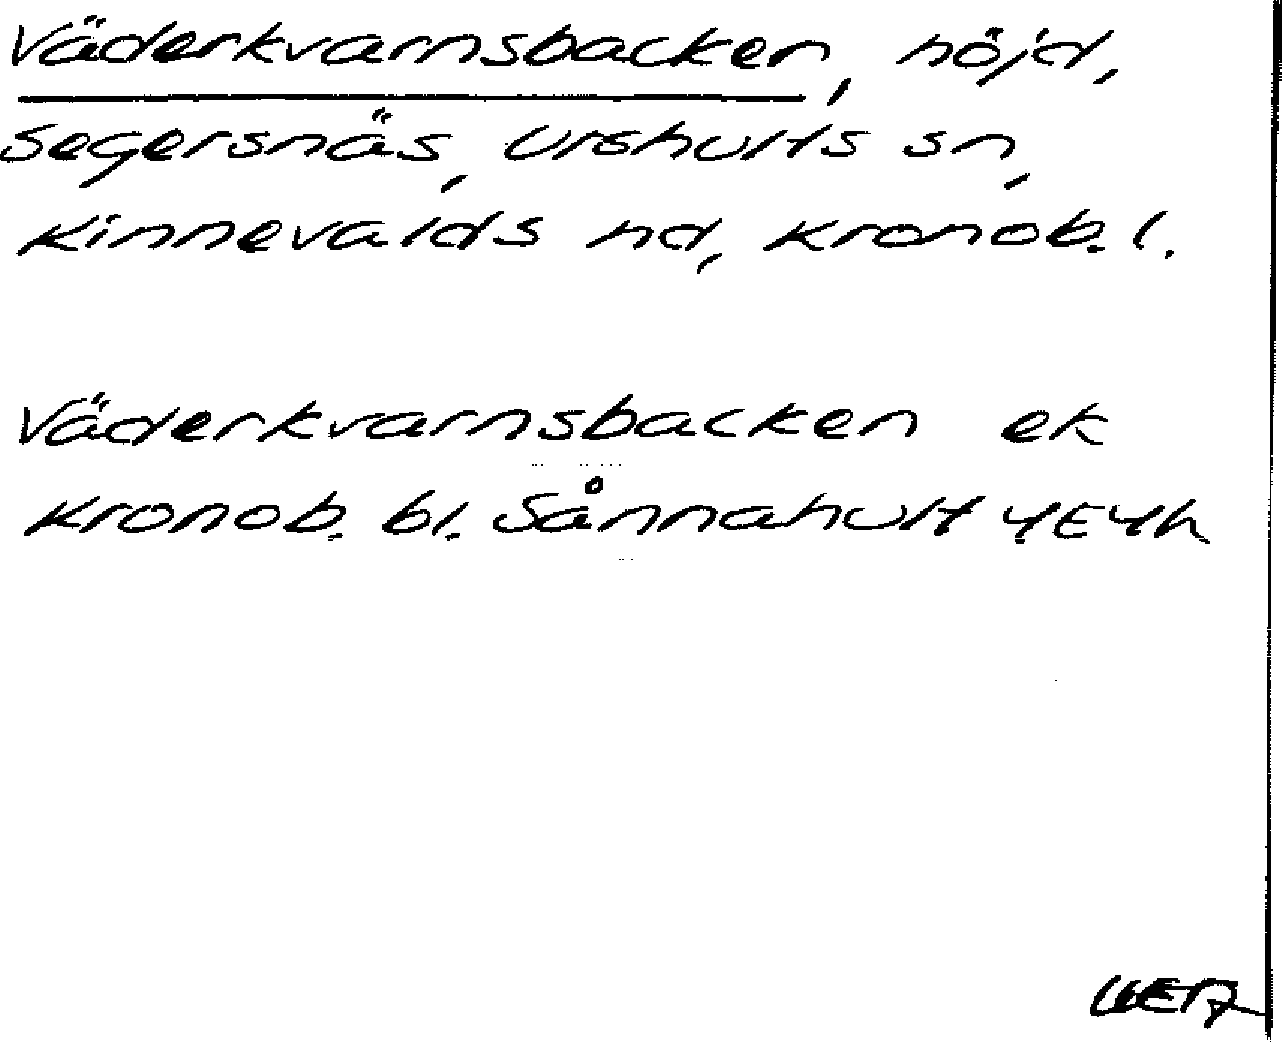 Väderkvarnsbacken, höjd,
Segersnäs, Urshults sn,
Kinnevalds hd, Kronob. l.
Väderkvarnsbacken ek
Kronob. bl. Sånnahult 4E4h